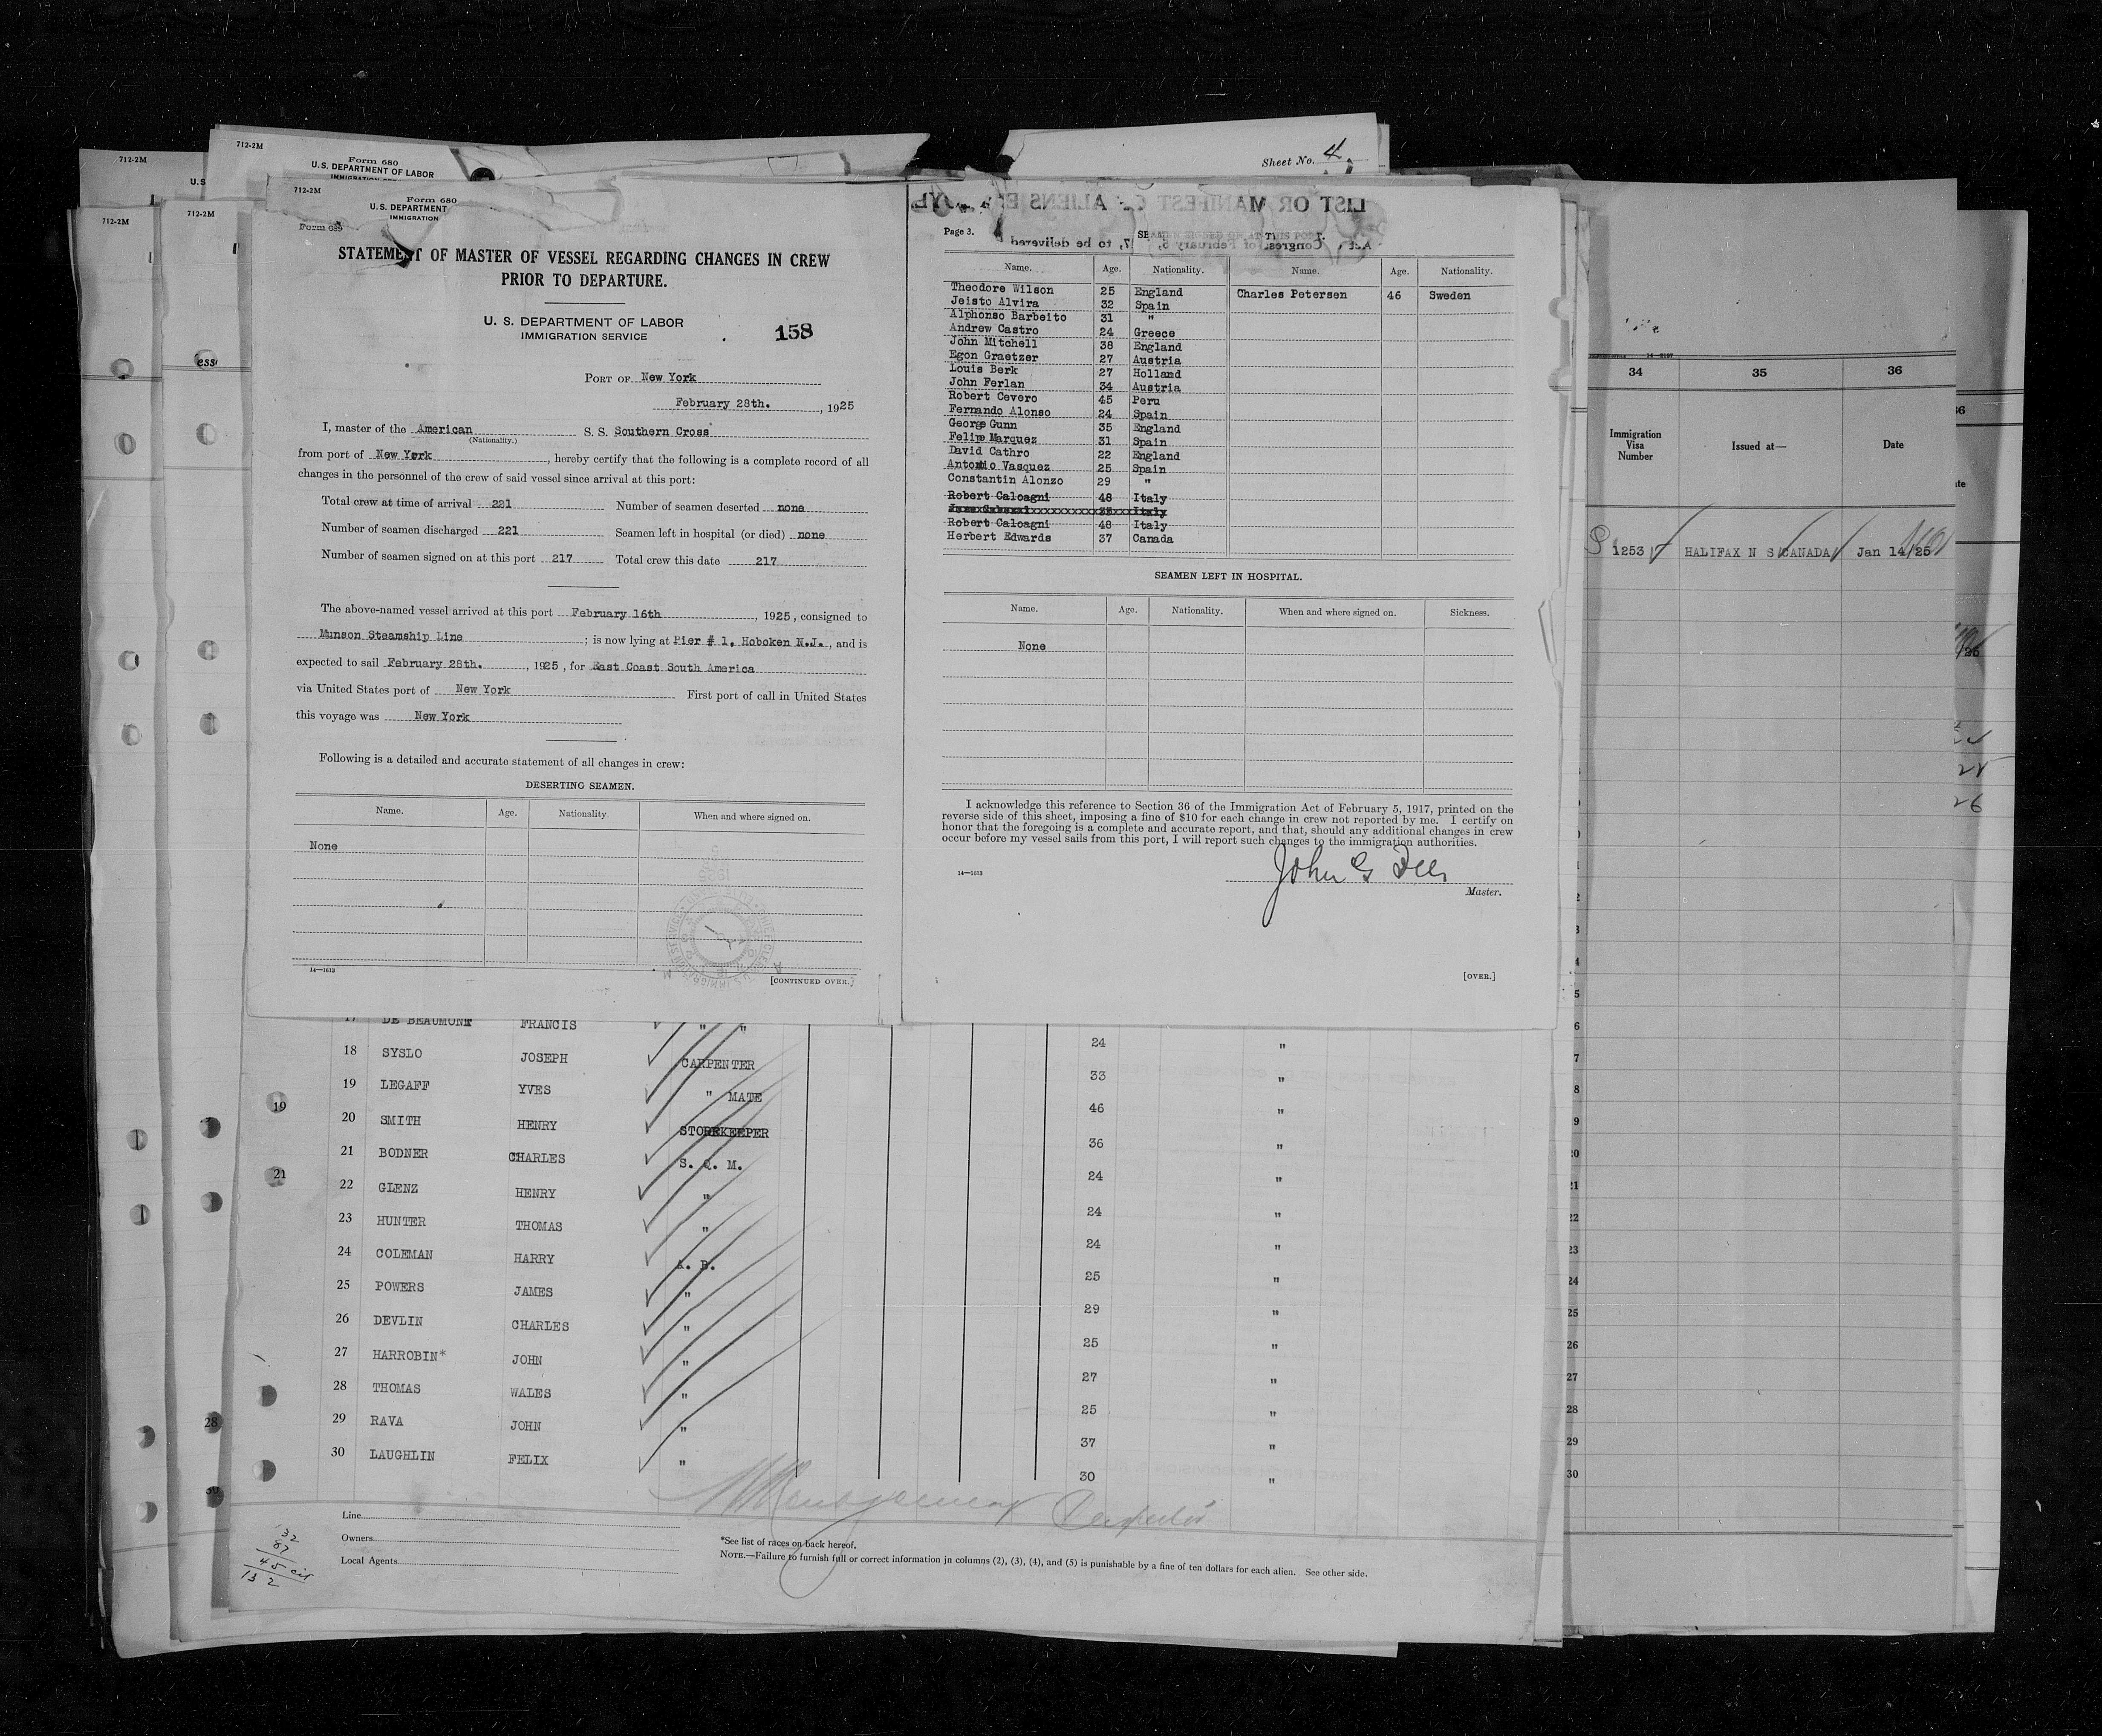 712-2M
Form 680
U. S. DEPARTMENT OF LABOR
Sheet No. 4
712-2M
U.S
712-2M
712-2M
712-2M
Form 680
U. S. DEPARTMENT
IMMIGRATION
Form 689
STATEMENT OF MASTER OF VESSEL REGARDING CHANGES IN CREW
PRIOR TO DEPARTURE.
U. S. DEPARTMENT OF LABOR
IMMIGRATION SERVICE
158
PORT OF New York
February 28th. , 1925
I, master of the American S. S. Southern Cross
(Nationality.)
from port of New York , hereby certify that the following is a complete record of all
changes in the personnel of the crew of said vessel since arrival at this port:
Total crew at time of arrival 221 Number of seamen deserted none
Number of seamen discharged 221 Seamen left in hospital (or died) none
Number of seamen signed on at this port 217 Total crew this date 217
The above-named vessel arrived at this port February 16th , 1925, consigned to
Munson Steamship Line ; is now lying at Pier # 1, Hoboken N.J. , and is
expected to sail February 28th. , 1925 , for East Coast South America
via United States port of New York First port of call in United States
this voyage was New York
Following is a detailed and accurate statement of all changes in crew:
DESERTING SEAMEN.
Name. Age. Nationality When and where signed on.
None
14—1613
[CONTINUED OVER.]
LIST OR MANIFEST OF ALIENS
Page 3.
Act, Congress of February 5, 17, to be delivered
Name. Age. Nationality. Name. Age. Nationality.
Theodore Wilson 25 England Charles Petersen 46 Sweden
Jeisto Alvira 32 Spain
Alphonso Barbeito 31 "
Andrew Castro 24 Greece
John Mitchell 38 England
Egon Graetzer 27 Austria
Louis Berk 27 Holland
John Ferlan 34 Austria
Robert Cevero 45 Peru
Fernando Alonso 24 Spain
George Gunn 35 England
Felipe Marquez 31 Spain
David Cathro 22 England
Antonio Vasquez 25 Spain
Constantin Alonzo 29 "
Robert Caloagni 48 Italy
Italy
Robert Caloagni 48 Italy
Herbert Edwards 37 Canada
SEAMEN LEFT IN HOSPITAL.
Name. Age. Nationality. When and where signed on. Sickness.
None
I acknowledge this reference to Section 36 of the Immigration Act of February 5, 1917, printed on the
reverse side of this sheet, imposing a fine of $10 for each change in crew not reported by me. I certify on
honor that the foregoing is a complete and accurate report, and that, should any additional changes in crew
occur before my vessel sails from this port, I will report such changes to the immigration authorities.
John G
14—1613
Master.
[OVER.]
34 35 36
Immigration
Visa
Number
Issued at—
Date
1253 HALIFAX N S CANADA Jan 14/25
17 DE BEAUMONT FRANCIS " " 24 "
18 SYSLO JOSEPH CARPENTER 33 "
19 LEGAFF YVES " MATE 46 "
20 SMITH HENRY STOREKEEPER 36 "
21 BODNER CHARLES S. Q. M. 24 "
22 GLENZ HENRY " 24 "
23 HUNTER THOMAS " 24 "
24 COLEMAN HARRY A. B. 25 "
25 POWERS JAMES " 29 "
26 DEVLIN CHARLES " 25 "
27 HARROBIN* JOHN " 27 "
28 THOMAS WALES " 25 "
29 RAVA JOHN " 37 "
30 LAUGHLIN FELIX " 30 "
19
21
28
30
Line
Owners
Local Agents
*See list of races on back hereof.
NOTE.—Failure to furnish full or correct information in columns (2), (3), (4), and (5) is punishable by a fine of ten dollars for each alien. See other side.
32
67
45 cit
132
20
21
22
23
24
25
26
27
28
29
30